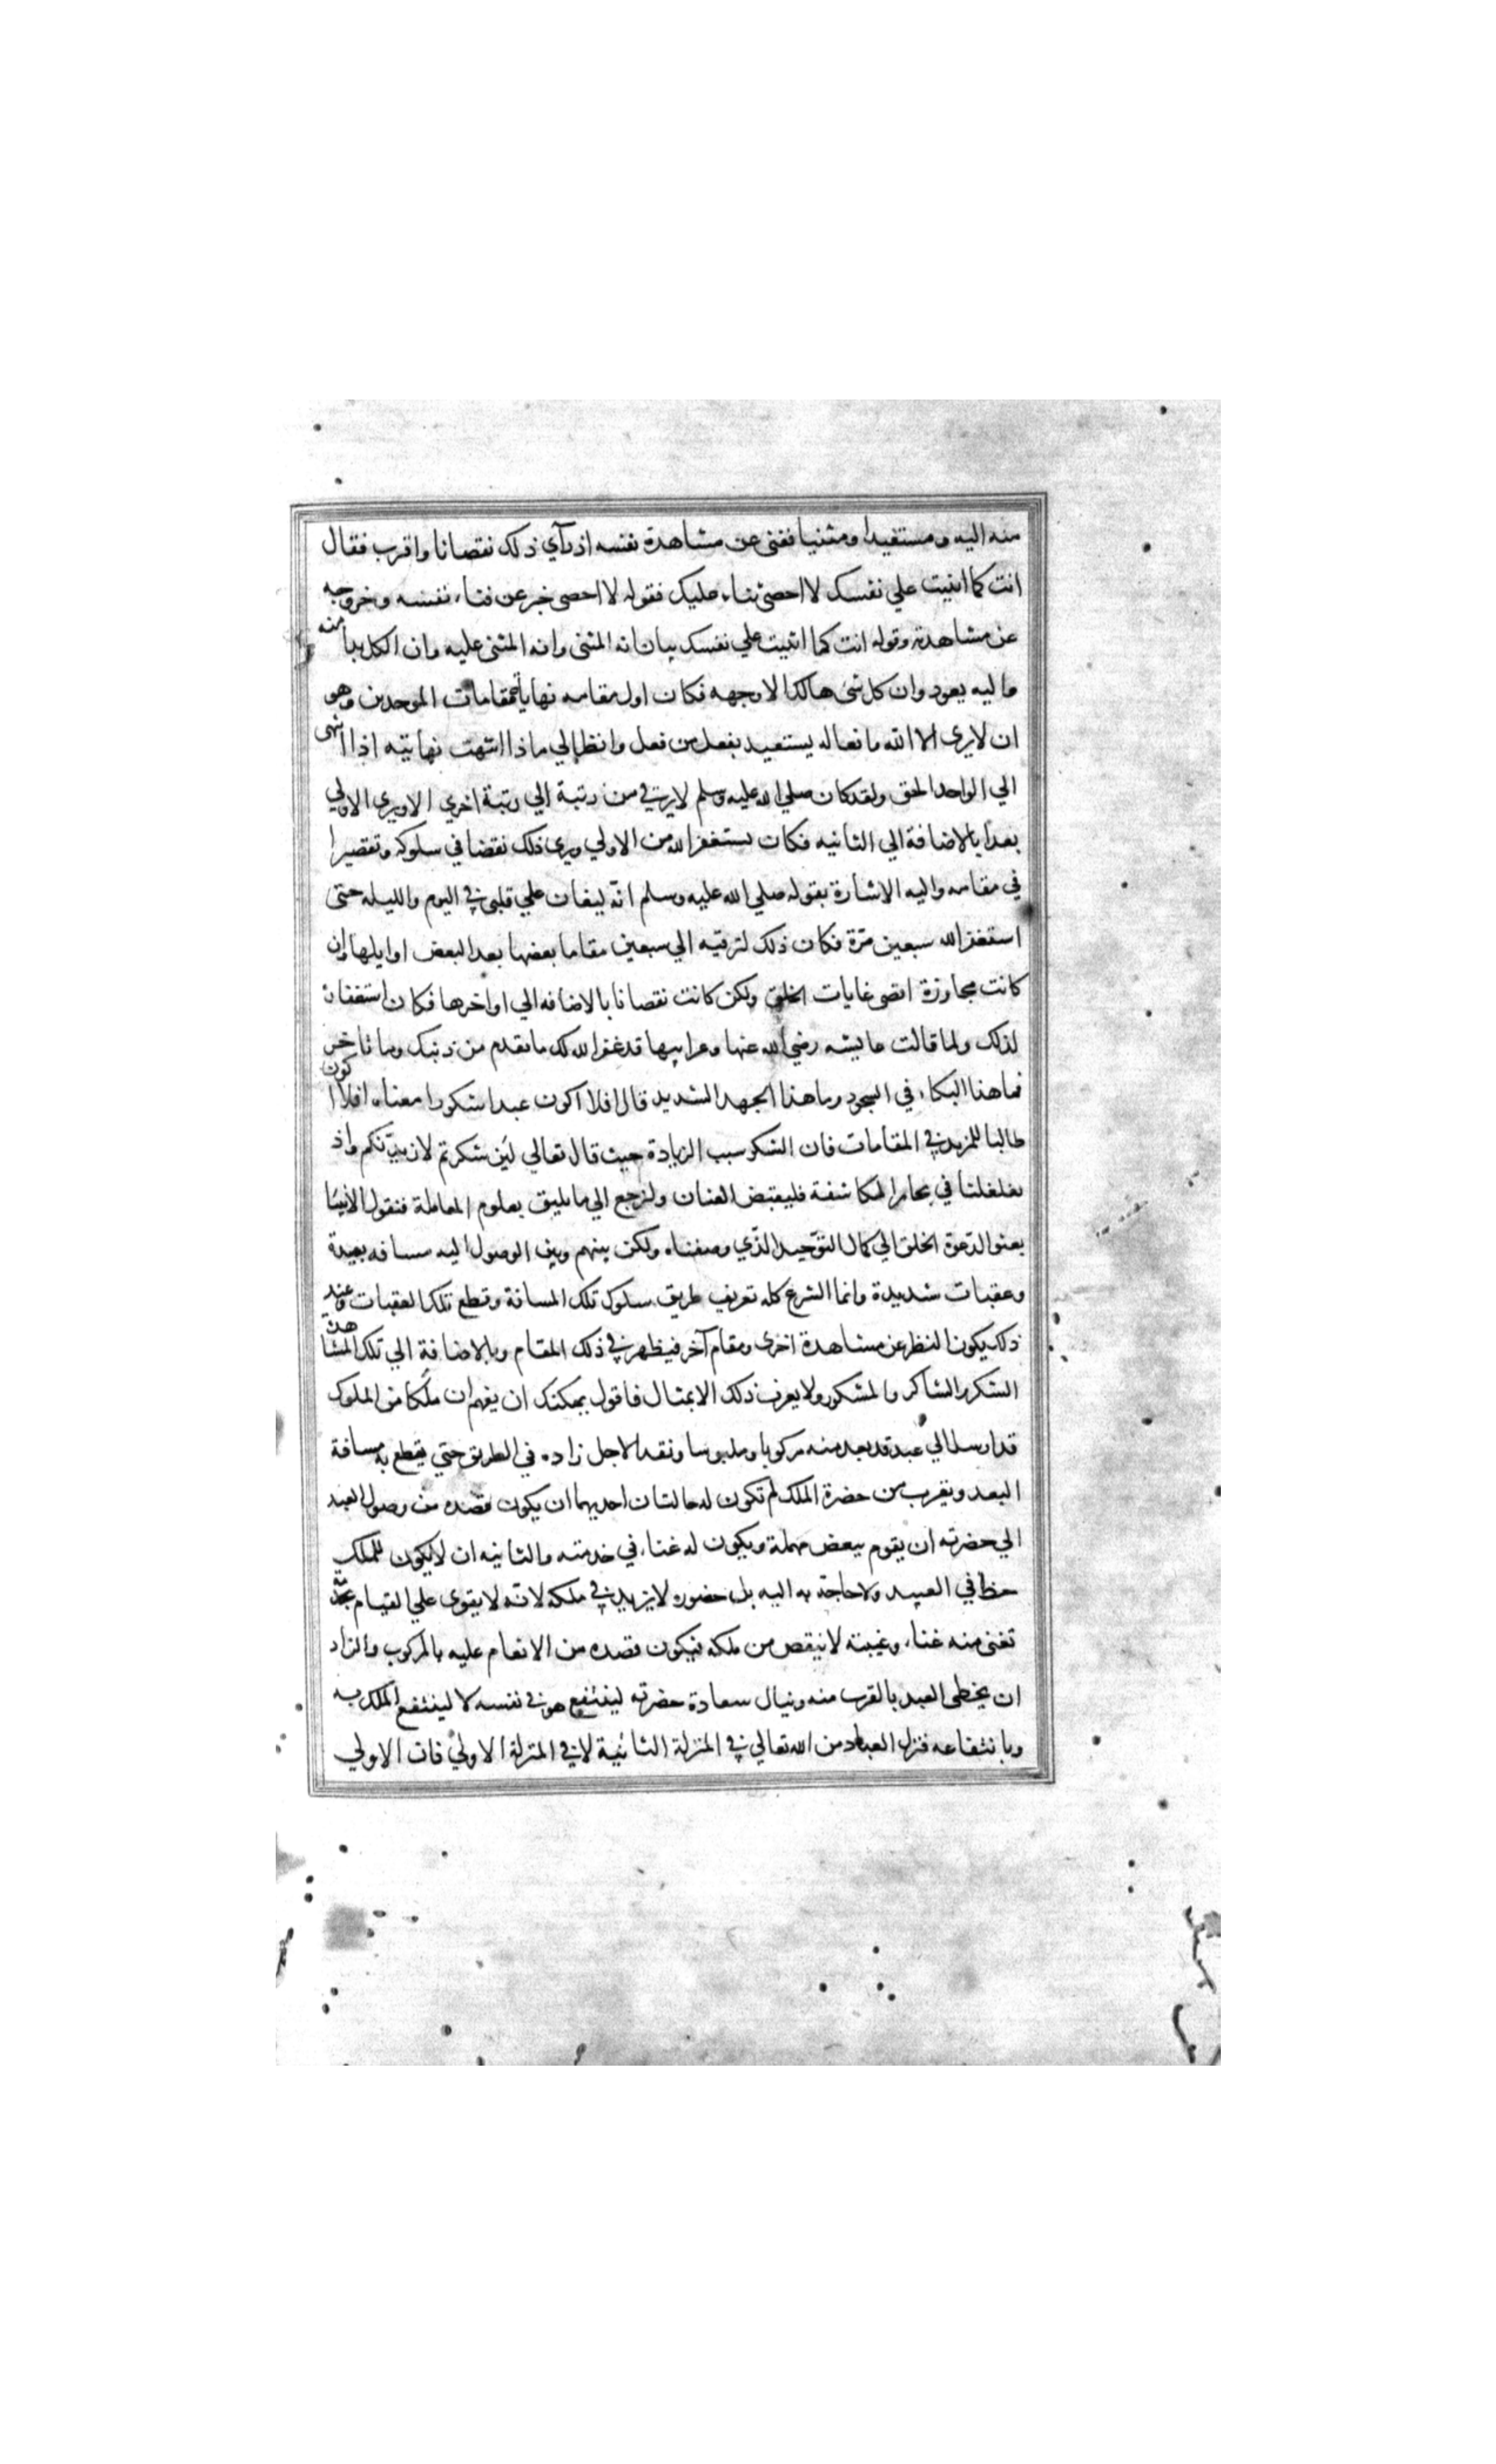 منه اليه ومستفيدا ومثنيا ففنى عن مشاهدة نفسه اذ رآي ذلك نقصانا واقرب فقال
انت كما اثنيت علي نفسك لا احصى ثناء عليك فقوله لا احصى خبر عن فناء نفسه وخروجه
عن مشاهدته وقوله انت كما اثنيت علي نفسك بيان انه المثنى وانه المثنى عليه وان الكل بدأ منه
واليه يعود وان كل شئ هالك الا وجهه فكان اول مقامه نهاية مقامات الموحدين وهو
ان لا يرى الا الله وافعاله يستعيد بفعل من فعل وانظر الي ماذا انتهت نهايته اذا انتهى
الي الواحد الحق ولقد كان صلي الله عليه وسلم لا يرتقي من رتبة الي رتبة اخري الا ويري الاولي
بعدا بالاضافة الي الثانيه فكان يستغفر الله من الاولي ويرى ذلك نقصا في سلوكه وتقصيرا
في مقامه واليه الاشارة بقوله صلي الله عليه وسلم انّه ليغان علي قلبى في اليوم والليله حتى
استغفر الله سبعين مرّة فكان ذلك لترقيه الي سبعين مقاما بعضها بعد البعض اوايلها وان
كانت مجاوزة اقصى غايات الخلق ولكن كانت نقصانا بالاضافه الي اواخرها فكان استغفان
لذلك ولما قالت عايشه رضي الله عنها وعن ابيها قد غفر الله لك ما تقدم من ذنبك وما تاخر
فما هذا البكاء في السجود وما هذا الجهد الشديد قال افلا اكون عبدا شكورا معناه افلا اكون
طالبا للمزيد في المقامات فان الشكر سبب الزيادة حيث قال تعالي لئن شكرتم لازيدنّكم واذ
تغلغلنا في بحار المكاشفة فليقبض العنان ولنرجع الي ما يليق بعلوم المعاملة فنقول الانبيا
بعثوا لدعوة الخلق الي كمال التوّحيد الذّي وصفناه ولكن بينهم وبين الوصول اليه مسافه بعيدة
وعقبات شديدة وانما الشرع كله تعريف طريق سلوك تلك المسافة وقطع تلك العقبات وعند
ذلك يكون النظر عن مشاهدة اخرى ومقام آخر فيظهر في ذلك المقام وبالاضافة الي تلك المشاهدة
الشكر والشاكر والمشكور ولا يعرف ذلك الا بمثال فاقول يمكنك ان يفهم ان ملكا من الملوك
قد ارسل الي عبد قد بعد منه مركوبا وملبوسا ونقدا لاجل زاده في الطريق حتي يقطع به مسافة
البعد ويقرب من حضرة الملك ثم تكون له حالتان احديهما ان يكون قصده من وصول العبد
الي حضرته ان يقوم ببعض مهماته ويكون له غناء في خدمته والثانيه ان لا يكون للملك
حظ في العبيد ولا حاجة به اليه بل حضوره لا يزيد في ملكه لانّه لا يقوى علي القيام بخدمة
تغنى منه غناء وغيبته لا ينقص من ملكه فيكون قصده من الانعام عليه بالمركوب والزاد
ان يحظى العبد بالقرب منه وينال سعادة حضرته لينتفع هو في نفسه لا لينتفع الملك به
وبانتفاعه فنزل العباد من الله تعالي في المنزلة الثانية لا في المنزلة الاولي فان الاولي